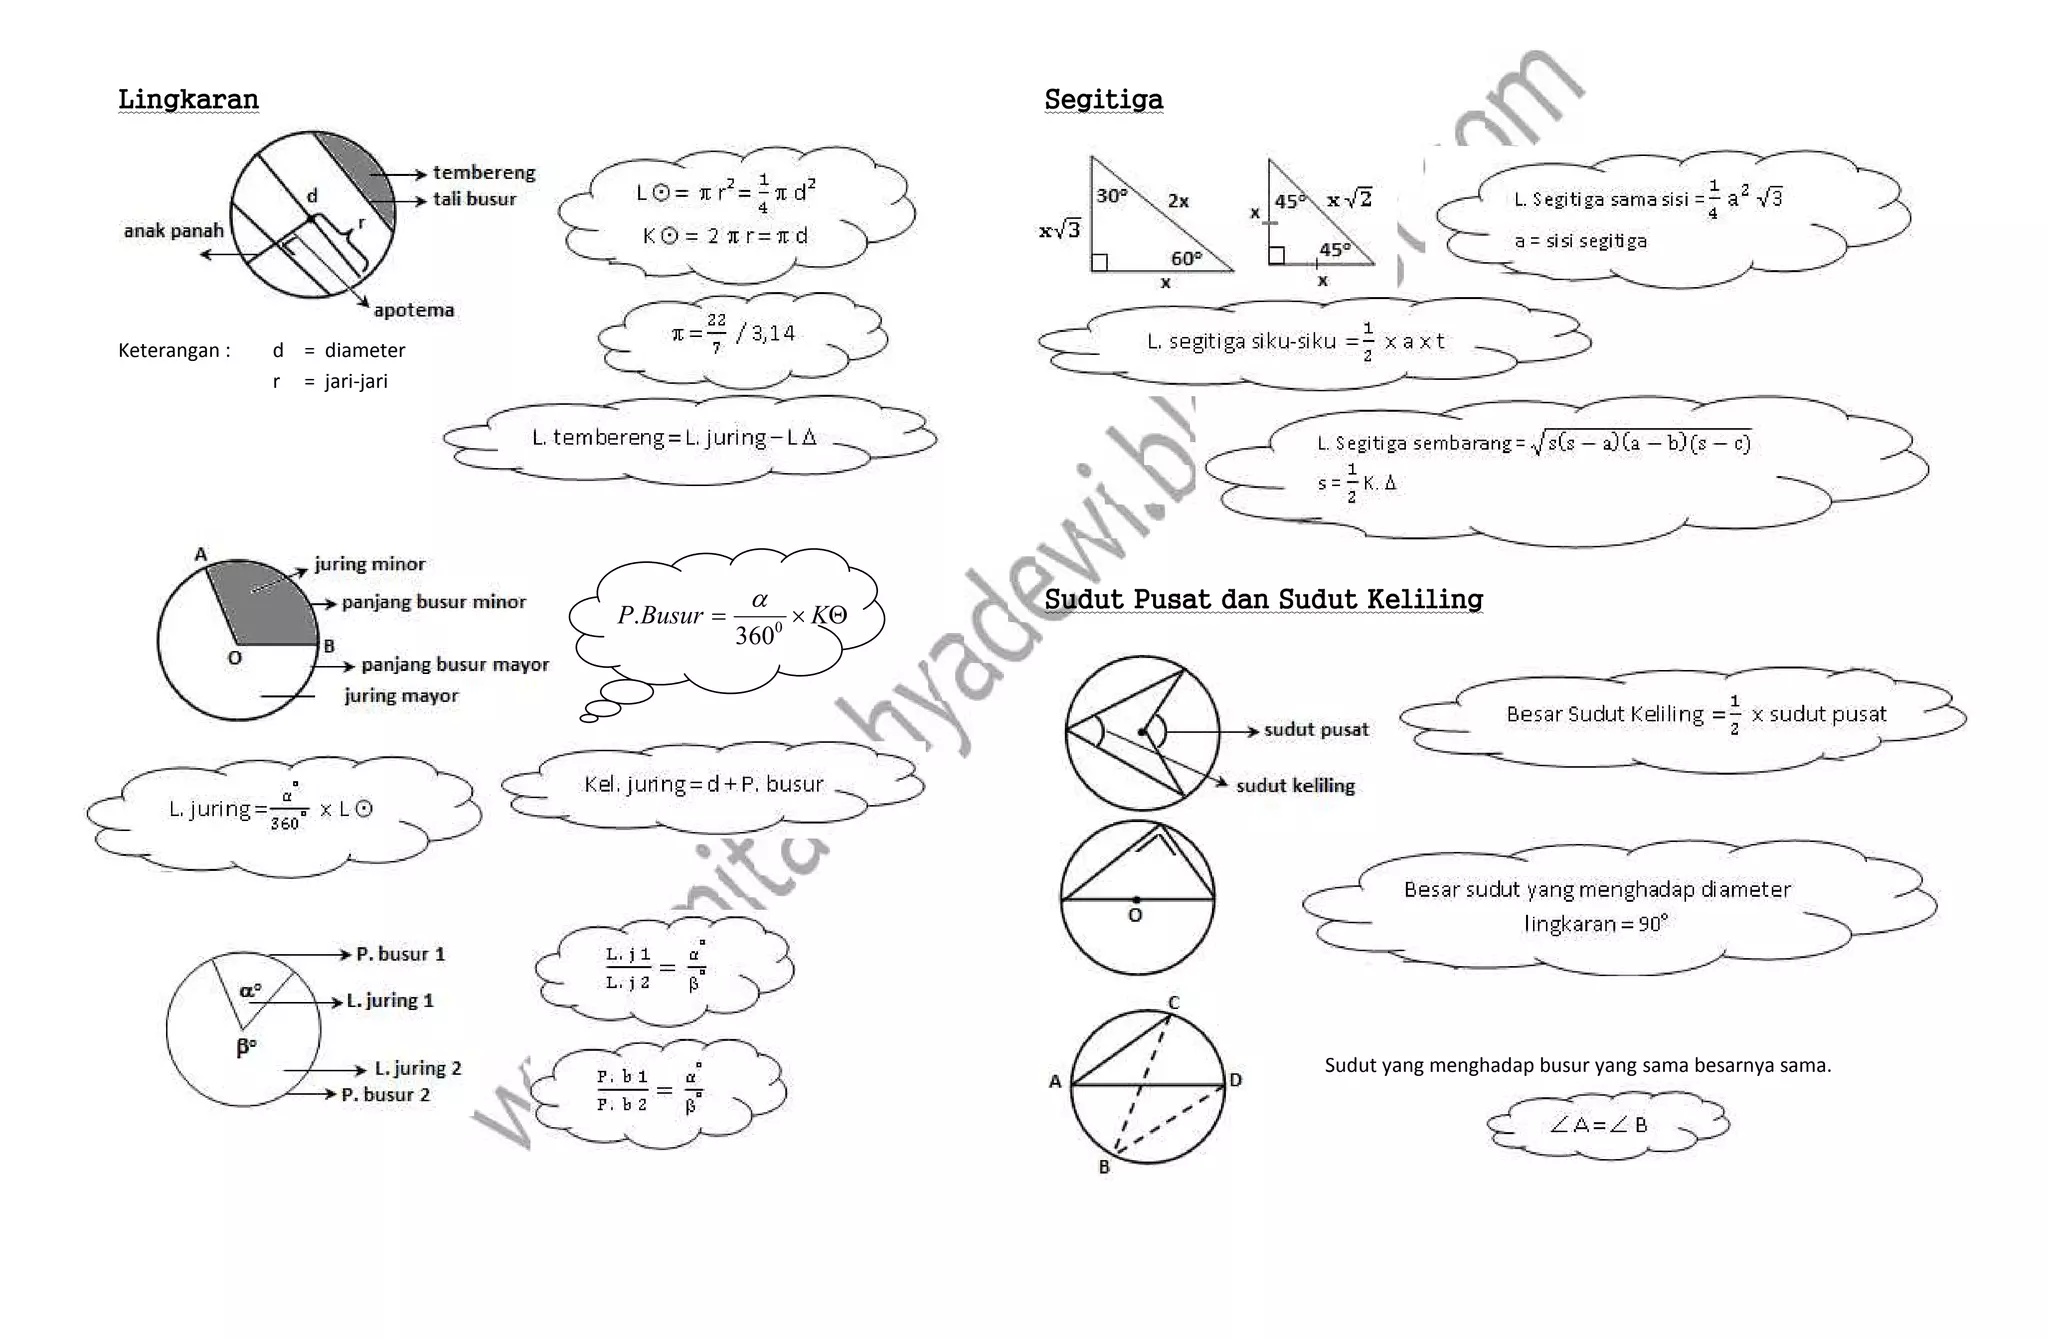 Lingkaran
tembereng
tali busur
d
r
anak panah
apotema
L ⊙ = π r² = 1/4 π d²
K ⊙ = 2 π r = π d
π = 22/7 / 3,14
Keterangan : d = diameter
r = jari-jari
L. tembereng = L. juring – L Δ
A
juring minor
panjang busur minor
B
O
panjang busur mayor
juring mayor
P.Busur = α/360⁰ × KΘ
L. juring = α°/360° x L ⊙
Kel. juring = d + P. busur
P. busur 1
α°
L. juring 1
β°
L. juring 2
P. busur 2
L. j 1/L. j 2 = α°/β°
P. b 1/P. b 2 = α°/β°
Segitiga
30°
2x
x√3
60°
x
45°
x√2
x
45°
x
L. Segitiga sama sisi = 1/4 a² √3
a = sisi segitiga
L. segitiga siku-siku = 1/2 x a x t
L. Segitiga sembarang = √s(s − a)(a − b)(s − c)
s = 1/2 K. Δ
Sudut Pusat dan Sudut Keliling
sudut pusat
sudut keliling
Besar Sudut Keliling = 1/2 x sudut pusat
O
Besar sudut yang menghadap diameter
lingkaran = 90°
C
A
D
B
Sudut yang menghadap busur yang sama besarnya sama.
∠ A = ∠ B